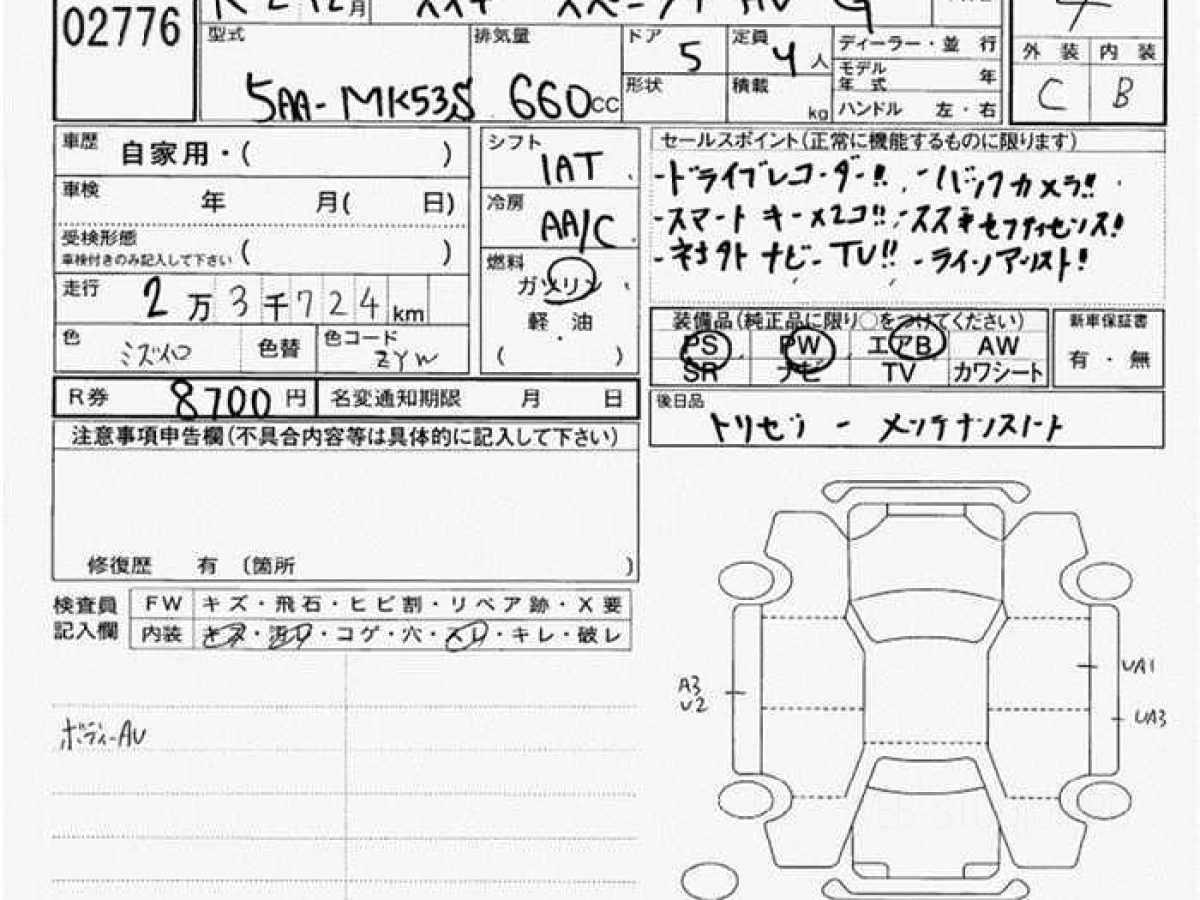 02776
R2 12月 スズキ スペーシア HV G
型式
5AA-MK53S
排気量
660cc
ドア 5
定員 4人
形状
積載 kg
ディーラー・並行
モデル年式 年
ハンドル 左・右
4
外装 内装
C B
車歴 自家用・( )
車検 年 月( 日)
受検形態
車検付きのみ記入して下さい ( )
走行 2万3千724km
色 ミズイロ 色替 色コード ZYW
シフト
IAT
冷房
AA/C
燃料
ガソリン
軽・油
( )
セールスポイント(正常に機能するものに限ります)
-ドライブレコーダー!! -バックカメラ!!
-スマートキー×2コ!! -スズキセフティセンス!
-ネオタト ナビ-TV!! -ライン/アシスト!
装備品(純正品に限り○をつけてください)
PS PW エアB AW
SR ナビ TV カワシート
新車保証書
有・無
R券 8700円 名変通知期限 月 日
後日品
トリセツ - メンテナンスノート
注意事項申告欄(不具合内容等は具体的に記入して下さい)
修復歴 有 〔箇所 〕
検査員記入欄
FW キズ・飛石・ヒビ割・リペア跡・X要
内装 キズ・汚レ・コゲ・穴・スレ・キレ・破レ
ボディーAU
A3
U2
UA1
UA3